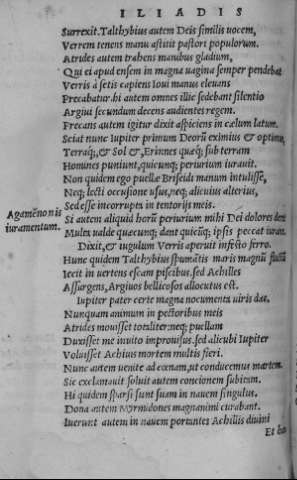 ILIADIS
Surrexit. Talthybius autem Deis similis uocem,
Verrem tenens manu astitit pastori populorum.
Atrides autem trahens manibus gladium,
Qui ei apud ensem in magna uagina semper pendebat
Verris à setis capiens Ioui manus eleuans
Precabatur. hi autem omnes illic sedebant silentio
Argiui secundum decens audientes regem.
Precans autem igitur dixit aspiciens in cælum latum.
Sciat nunc Iupiter primum Deorū eximius & optimus
Terraq;, & Sol &, Erinnes quæq; sub terram
Homines puniunt, quicunq; periurium iurauit.
Non quidem ego puellæ Briseidi manum intulisse,
Neq; lecti occasione usus, neq; alicuius alterius,
Sed esse incorruptā in tentorijs meis.
Agamēnonis
iuramentum.
Si autem aliquid horū periurium mihi Dei dolores dent
Multos ualde quæcunq; dant quicūq; ipsis peccat iurans.
Dixit, & iugulum Verris aperuit infesto ferro.
Hunc quidem Talthybius spumātis maris magnū
Iecit in uertens escam piscibus. sed Achilles
Assurgens, Argiuos bellicosos allocutus est.
Iupiter pater certe magna nocumenta uiris das,
Nunquam animum in pectoribus meis
Atrides mouisset totaliter: neq; puellam
Duxisset me inuito improuisus. sed alicubi Iupiter
Voluisset Achiuis mortem multis fieri.
Nunc autem uenite ad cœnam, ut conducemus martem.
Sic exclamauit soluit autem concionem subitam.
Hi quidem sparsi sunt suam in nauem singulus.
Dona autem Myrmidones magnanimi curabant.
Iuerunt autem in nauem portantes Achillis diuini